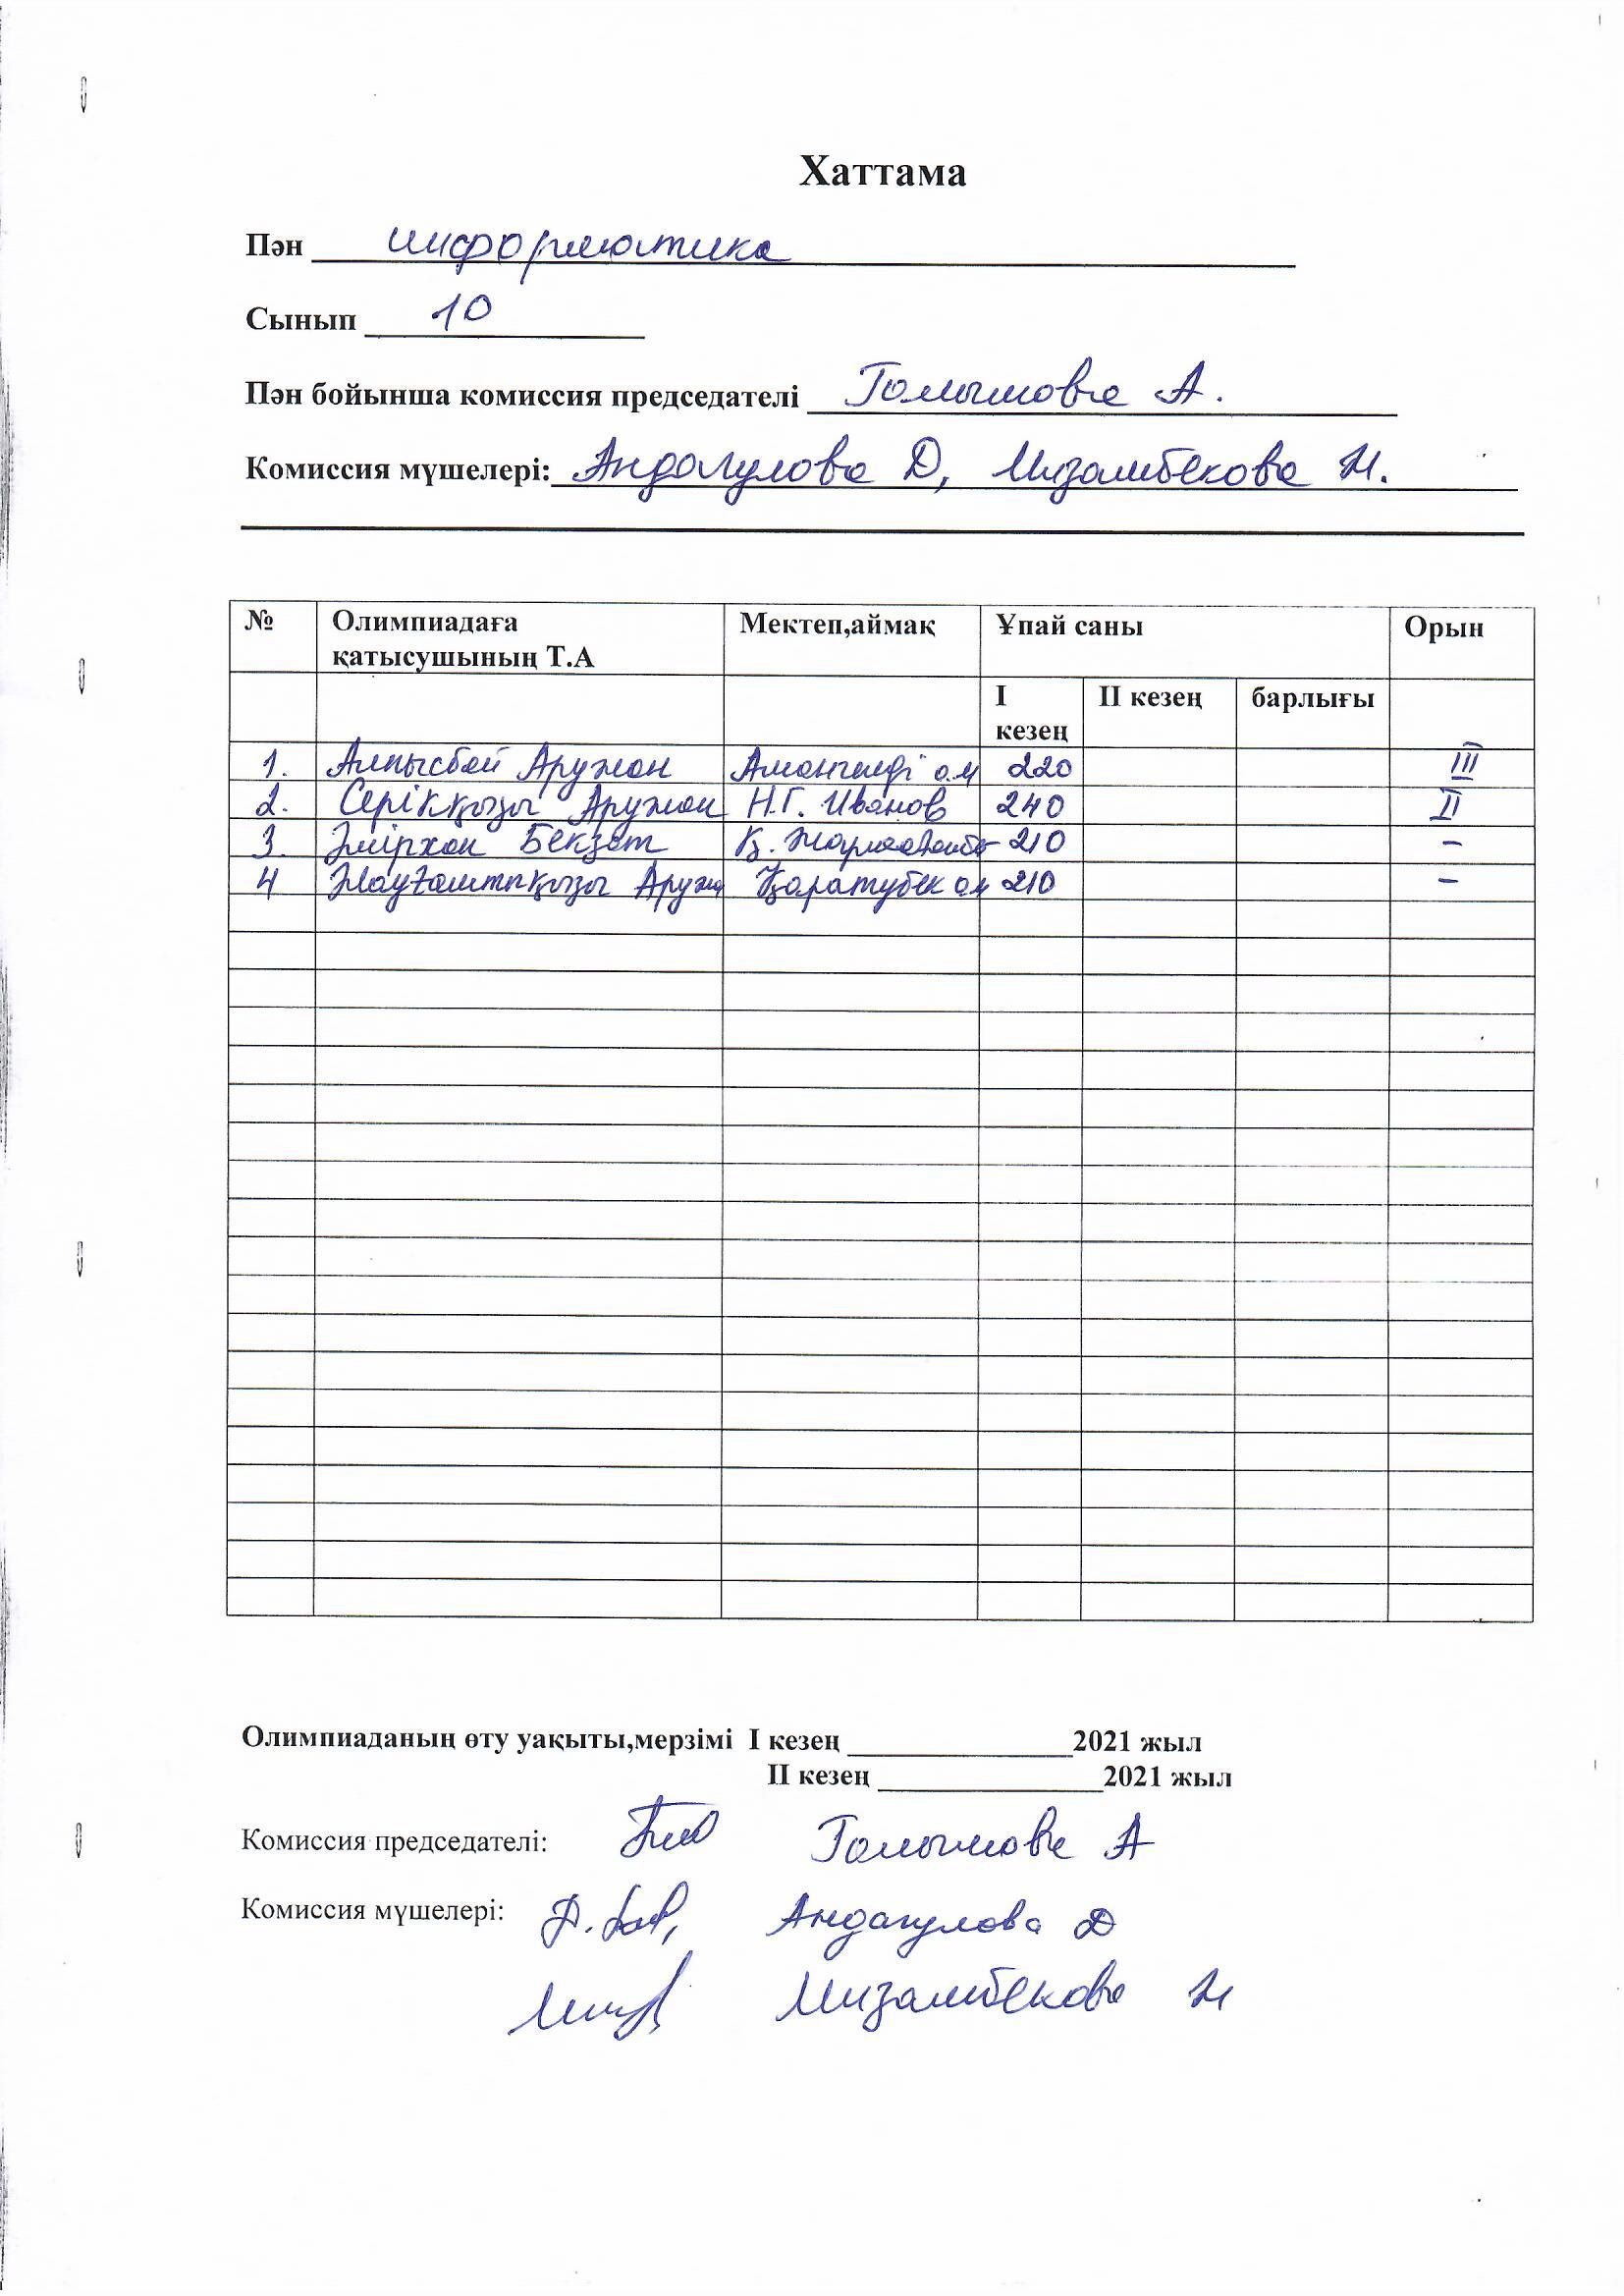 Хаттама
Пән информатика
Сынып 10
Пән бойынша комиссия председателі Голымова А.
Комиссия мүшелері: Андагулова Д, Мизамбекова Н.
№ Олимпиадаға қатысушының Т.А Мектеп,аймақ Ұпай саны Орын
I кезең II кезең барлығы
1. Алпысбай Аружан Амангелді о.м 220 III
2. Серікқызы Аружан Н.Г. Иванов 240 II
3. Әмірхан Бекзат Қ. 210 -
4 Аружа Қаратубек ом 210 -
Олимпиаданың өту уақыты,мерзімі I кезең 2021 жыл
II кезең 2021 жыл
Комиссия председателі: Голымова А
Комиссия мүшелері: Андагулова Д
Мизамбекова Н